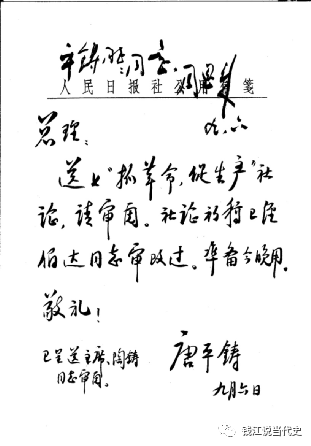 平铸 同意 周恩来
人民日报社公用笺
九.六
总理：
送上“抓革命，促生产”社
论，请审阅。社论初稿已经
伯达同志审改过。准备今晚用。
敬礼！
已呈送主席、陶铸
同志审阅。
唐平铸
九月六日
钱江说当代史